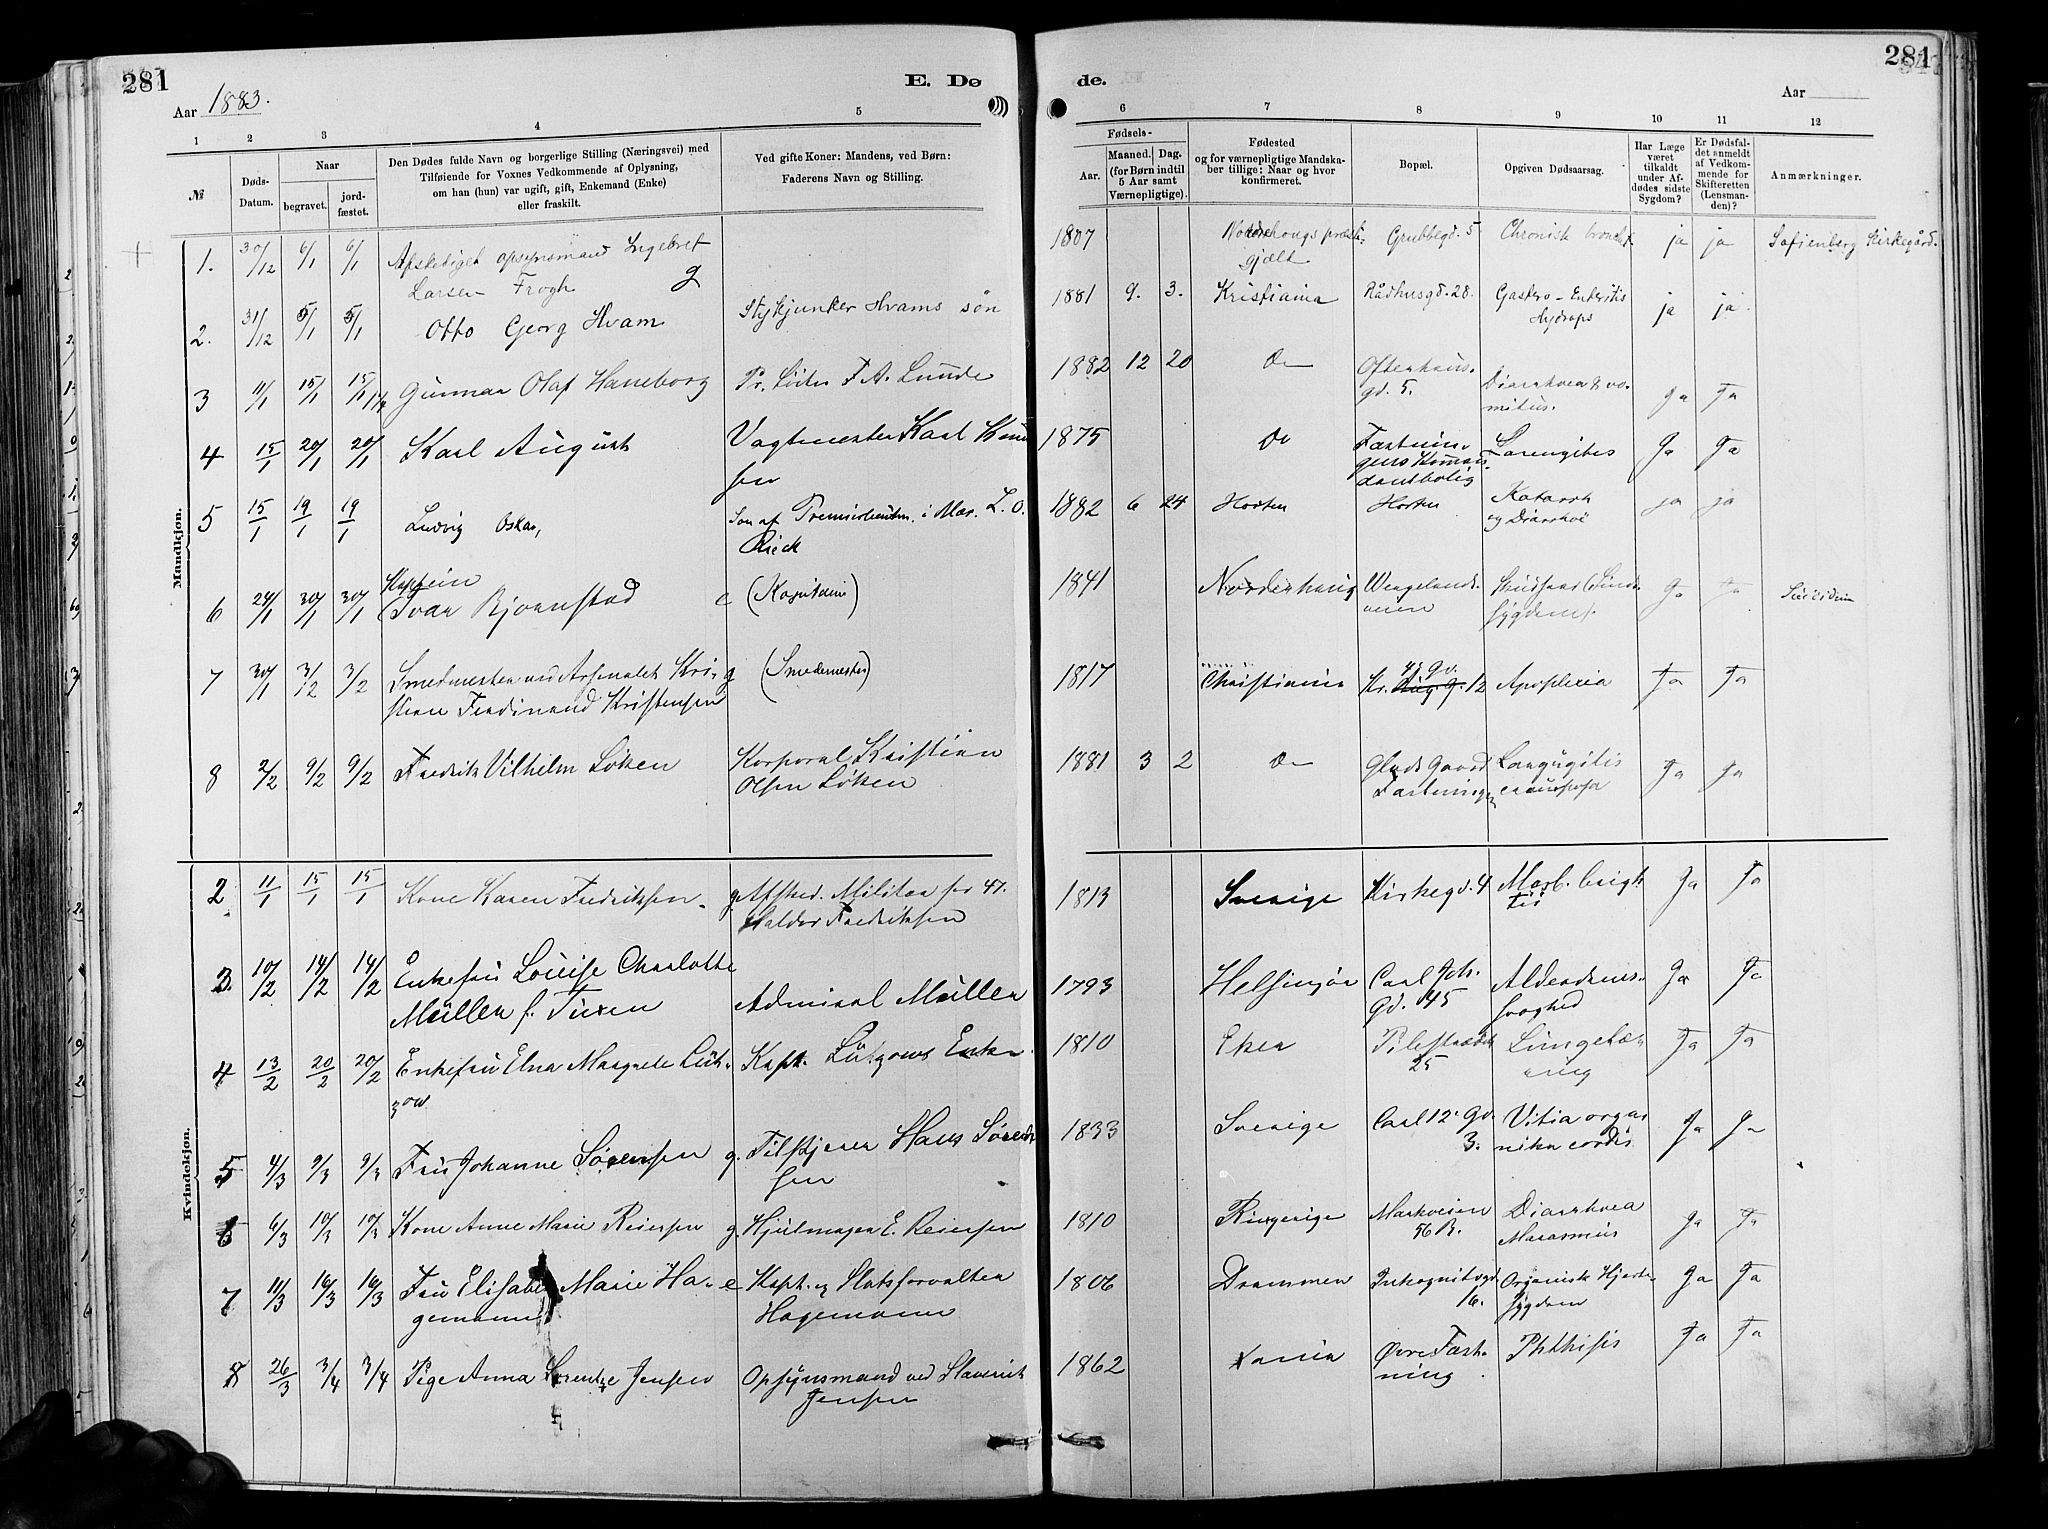 281
E. Dø
de.
281
Aar 1883.
Aar
1 2 3 4 5 6 7 8 9 10 11 12
№
Døds-
Datum.
Naar
begravet.
jord-
fæstet.
Den Dødes fulde Navn og borgerlige Stilling (Næringsvei) med
Tilføiende for Voxnes Vedkommende af Oplysning,
om han (hun) var ugift, gift, Enkemand (Enke)
eller fraskilt.
Ved gifte Koner: Mandens, ved Børn:
Faderens Navn og Stilling.
Fødsels-
Aar.
Maaned.
Dag.
(for Børn indtil
5 Aar samt
Værnepligtige).
Fødested
og for værnepligtige Mandska-
ber tillige: Naar og hvor
konfirmeret.
Bopæl.
Opgiven Dødsaarsag.
Har Læge
været
tilkaldt
under Af-
dødes sidste
Sygdom?
Er Dødsfal-
det anmeldt
af Vedkom-
mende for
Skifteretten
(Lensman-
den)?
Anmærkninger.
Mandkjøn.
1. 30/12 6/1 6/1 Afskediget opsynsmand Ingebret 1807 Grubbegd. 5 Chronisk bronchit. ja ja Sofienberg Kirkegård.
Larsen Frogh g gjælt
2. 31/12 5/1 5/1 Otto Georg Hvam Stykjunker Hvams søn 1881 9. 3. Kristiania Rådhusgd. 28. Gastro-Enteritis ja ja
Hydrops
3 11/1 15/1 15/1 Gunnar Olaf Haneborg Pr. Løitn F. A. Lunde 1882 12 20 Do Ja Ja
gd. 5. Diarrhoea & vo-
mitus.
4 15/1 20/1 20/1 Karl August Vagtmester Karl 1875 Do Fæstnin- Larengites Ja Ja
sen
5 15/1 19/1 19/1 Ludvig Oskar, Søn af Premierlieutn. i Mar. L. O. 1882 6 24 Horten Horten Katarrh ja ja
Rieck og Diarrhoe
6 24/1 30/1 30/1 Kaptein
Ivar Bjørnstad e (Kapitain) 1841 Norderhaug Wergelands- Ja Ja Suicidium
veien
7 30/1 3/2 3/2 Smedmester ved Arsenalet Kri- g (Smedemester) 1817 Christiania Apoplexia Ja Ja
stian Ferdinand Kristensen
8 2/2 9/2 9/2 Fredrik Vilhelm Løken Korporal Kristian 1881 3 2 Do Ja Ja
Olsen Løken
Kvindekjøn.
2 11/1 15/1 15/1 Kone Karen Fredriksen. g. Afsked. Militær 47. 1813 Sverige Kirkegd. 4 Morb. Brigh- Ja Ja
Haldor Fredriksen tii
3. 10/2 14/2 14/2 Enkefru Louise Charlotte 1793 Helsingør Carl Joh. Alderdoms- Ja Ja
Müller f. Tuxen Admiral Müller Gd. 45 svaghed
4 13/2 20/2 20/2 Enkefru Elna Margrete Lüt- Kapt. Lützows Enke. 1810 Eker Pilestrædet Lungetæ- Ja Ja
zow 25 ring
5 4/3 9/3 9/3 Fru Johanne Sørensen g. Tilskjærer Hans Søren- 1833 Sverige Carl 12. Gd. Vitia orga- Ja Ja
sen 3. nika cordis
6 6/3 10/3 10/3 Kone Anne Marie Reiersen g. Hjulmager E. Reiersen 1810 Ringerige Markveien Diarrhoea Ja Ja
56 B. Marasmus
7 11/3 16/3 16/3 Fru Elisabet Marie Ha- e Kapt. og Slotsforvalter 1806 Drammen Inkognitogd. Organisk Hjerte- Ja Ja
gemann Hagemann 16. sygdom
8 26/3 3/4 3/4 Pige Anna Lorentze Jensen Opsynsmand ved Slaveriet 1862 Xania Øvre Fæst- Phthisis Ja Ja
Jensen ning